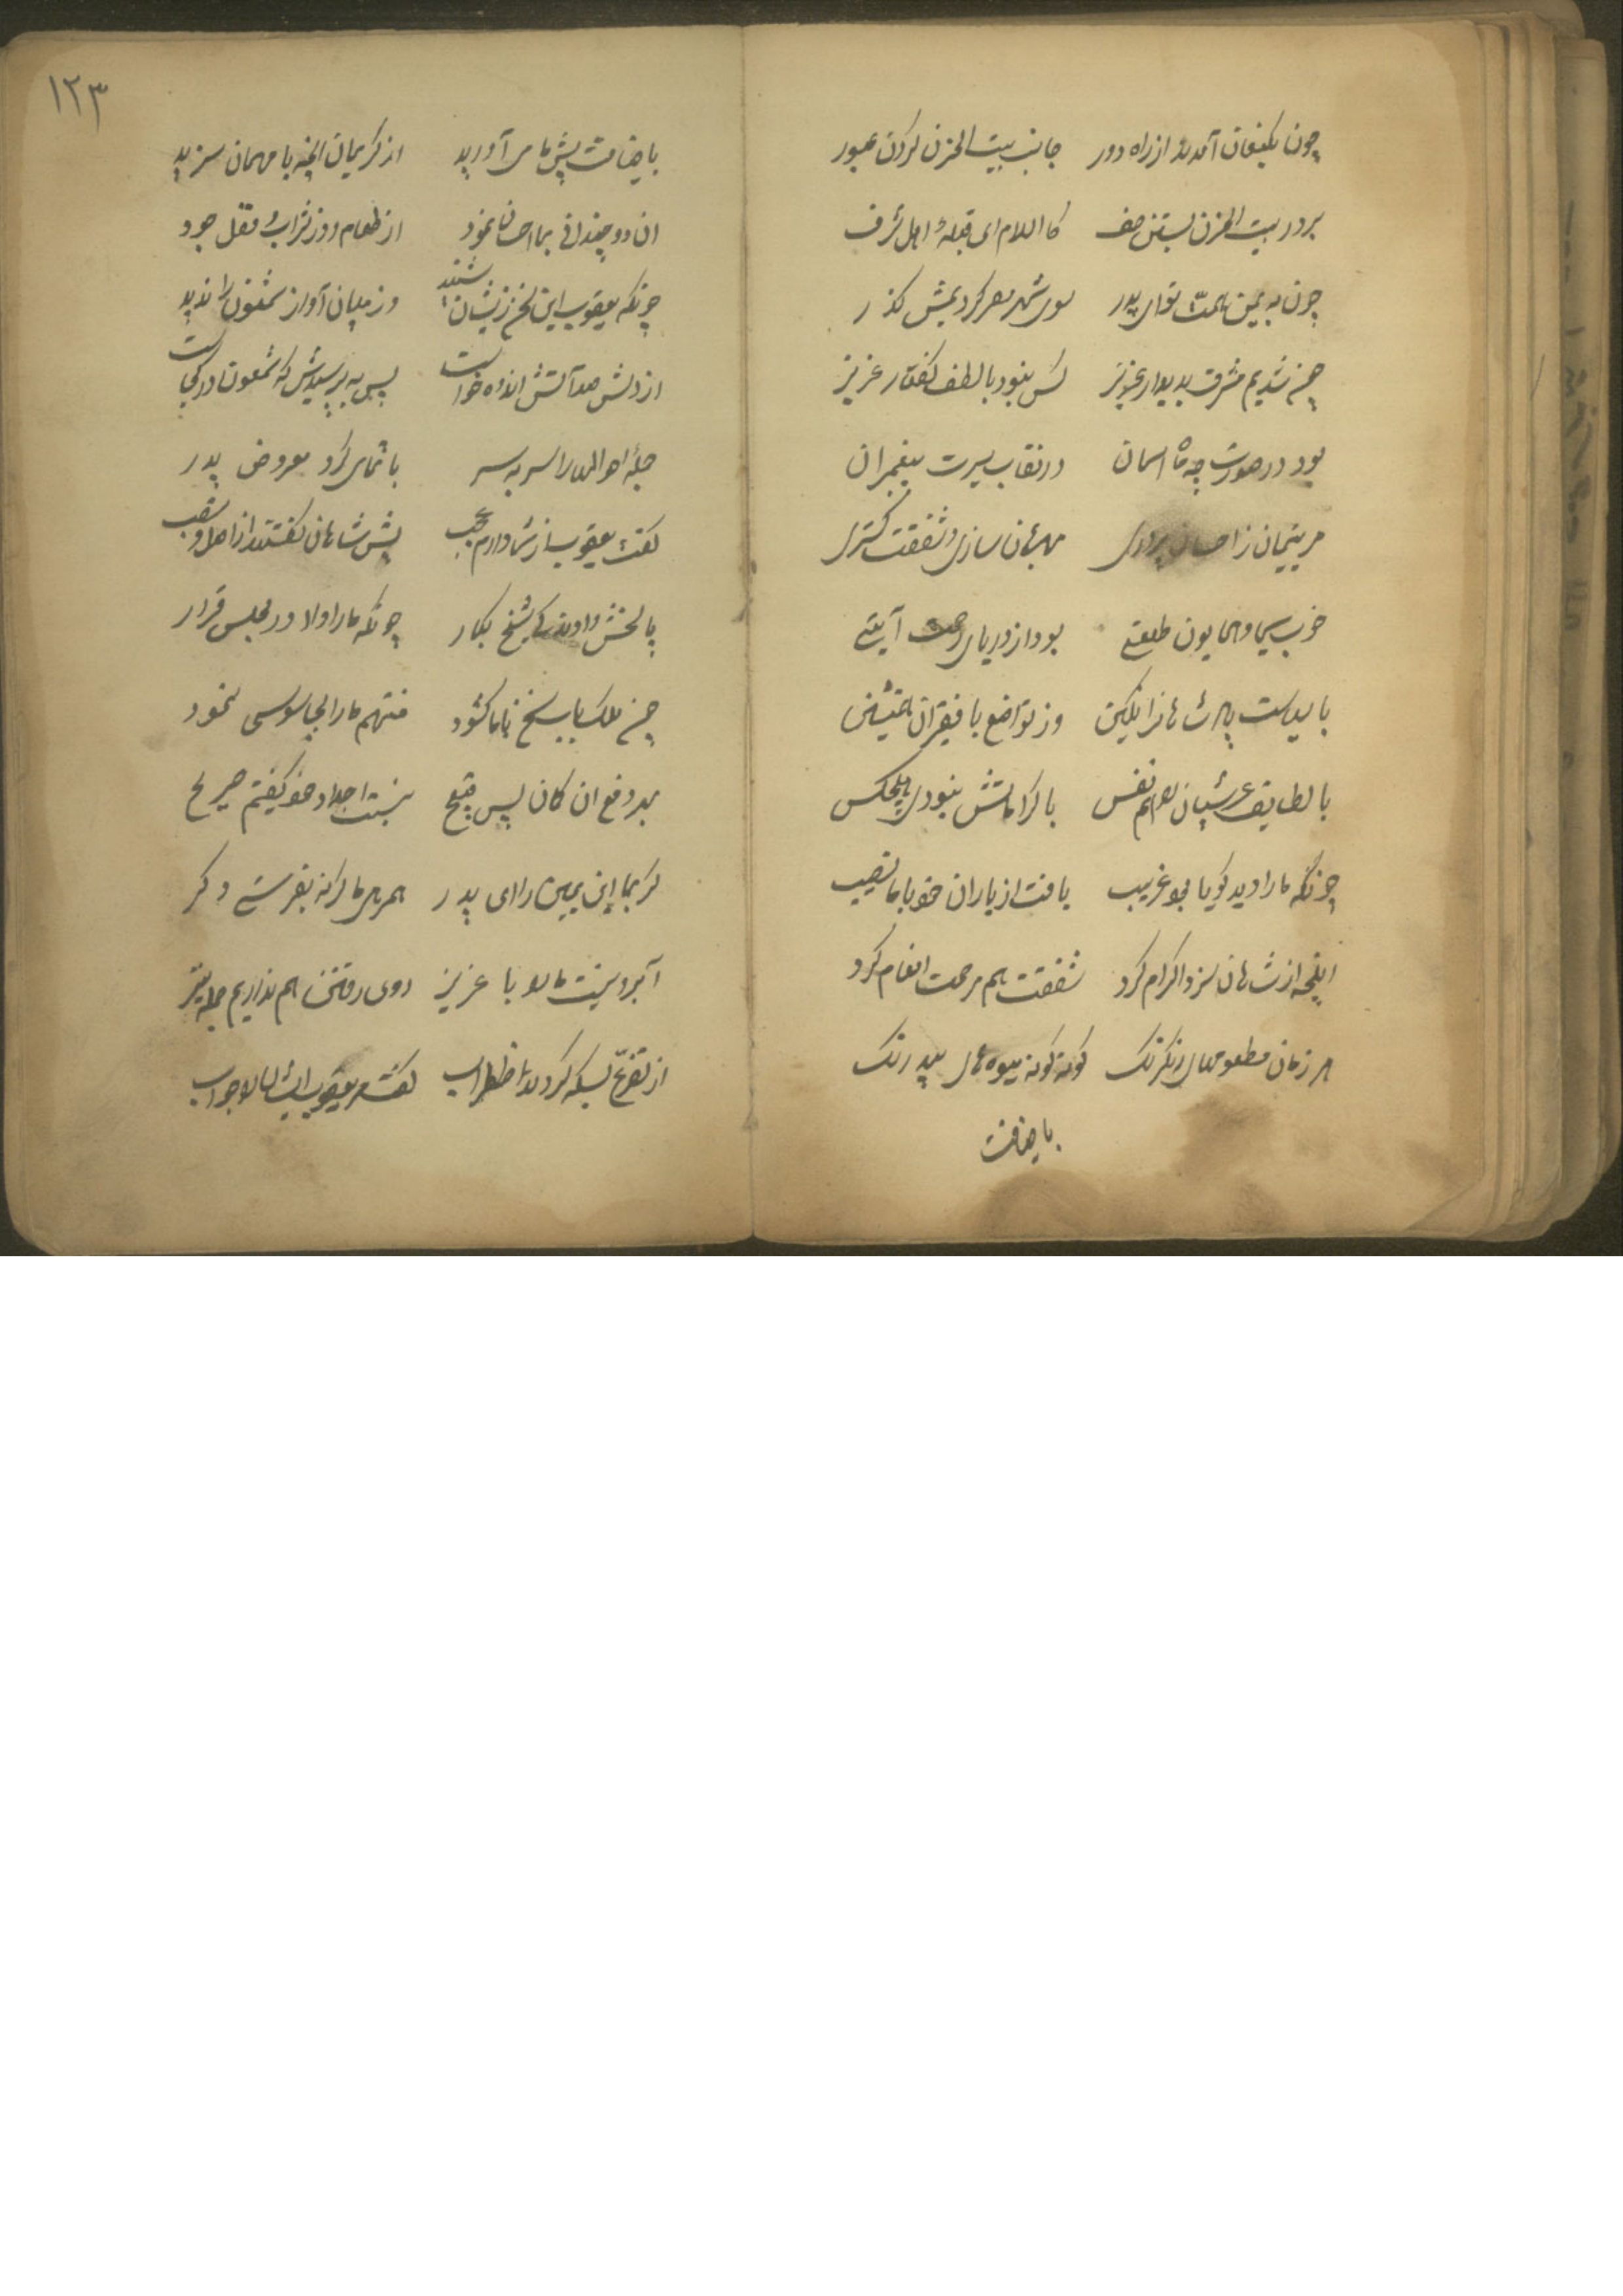 چون بکنعان آمدند از راه دور جانب بیت الحزن کردن عبور
بر در بیت الحزن بستن صف کا السلام ای قبلهٔ اهل شرف
چون به یمن همت تو ای پدر سوی شهر مصر کردیمش گذر
چون شدیم مشرف بدیدار عزیز کس نبود با لطف گفتار عزیز
بود در صورت چه ماه اسمان در نقاب سیرت پیغمبران
مر یتیمان ز احسان پروری مهربان سازی و شفقت گستری
خوب سیما و همایون طلعتی بود از دریای رحمت آیتی
با سیاست پادشاهانرا بکین وز تواضع با فقیران همنشین
با لطایف عرشیان را هم نفس با کراماتش نبودی هیچکس
چونکه ما را دید گویا بو غریب یافت از یاران خو با ما نصیب
اینچه از شاهان سزد اکرام کرد شفقت هم مرحمت انعام کرد
هر زمان مطعومهای رنگرنگ گونه گونه میوه های بیدرنگ
باضافت
۱۲۳
باضافت پیش ما می آورید از کریمان آنچه با مهمان سزید
ان دو چندانی بما احسان نمود از طعام و وز شراب و نقل جود
چونکه یعقوب این سخن زیشان شنید وز میان آواز شمعون را ندید
از دلش صد آتش اندوه خواست پس به پرسیدش که شمعون در کجاست
جمله احوالها را سر به سر با تمامی کرد معروض پدر
گفت یعقوب از شما دارم عجب پیش شاهان گفتند از اصل و نسب
پالخش دادند کای شیخ بکار چونکه ما را اولا در مجلس قرار
چون ملک با پاسخ با ما گشود متهم ما را بجاسوسی نمود
بهر دفع ان کان پس قبیح نسبت اجداد خو گفتیم صریح
گر بما این یمین را ای پدر همره ما گر نه بفرستی دگر
آبرو نیست ما را با عزیز روی رفتن هم نداریم جمله نیز
از تضرع بسکه کردند اضطراب گفت یعقوب ایشان را جواب